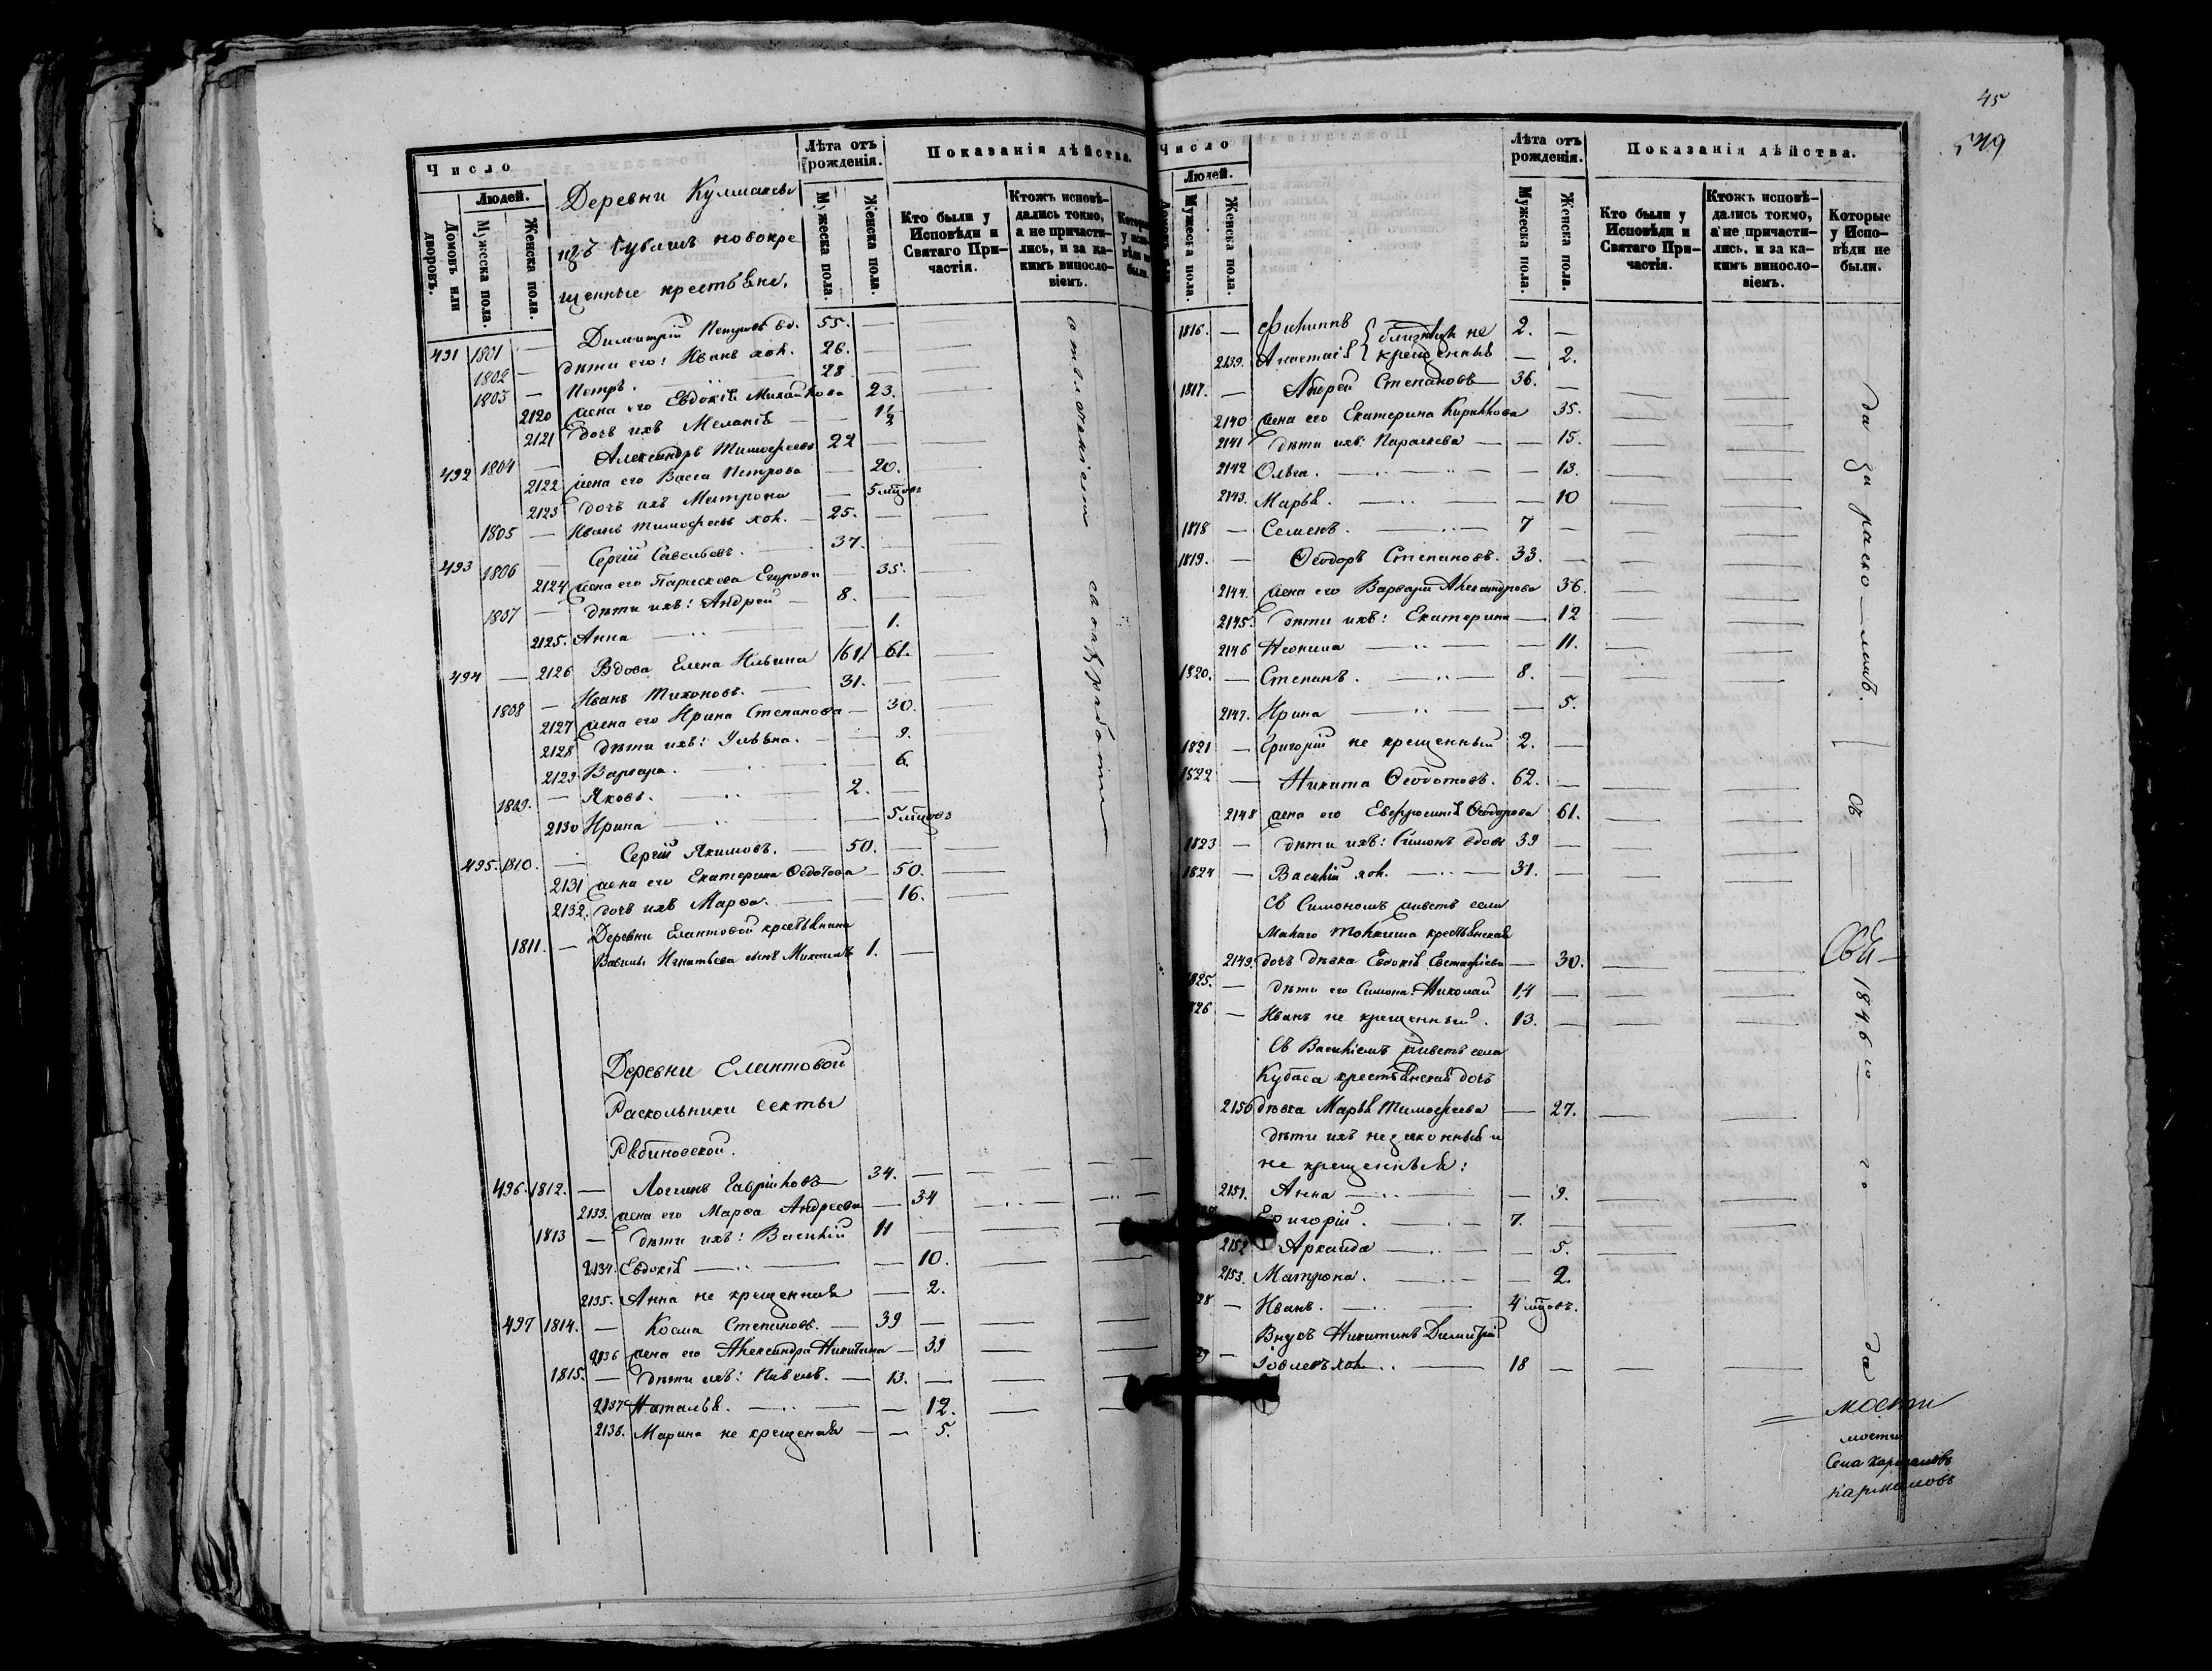 Число
Людей.
Домовъ или дворовъ.
Мужеска пола.
Женска пола.
Деревни Кулмаксы
изъ Чувашъ новокре
щенные крестьяне,
Лѣта отъ рожденія.
Мужеска пола.
Женска пола.
Показанія дѣйства.
Кто были у Исповѣди и Святаго Причастія.
Ктожъ исповѣдались токмо, а не причастились, и за какимъ винословіемъ.
491 1801 — Димитрій Петровъ вд. 55. —
1802 — дѣти его: Иванъ хол. 26. —
1803 — Петръ. — 28 —
2120 жена его Евдокія Михайлова 23.
2121 дочь ихъ Меланія — 1½
492 1804 — Александръ Тимофеевъ 22 —
2122 жена его Васса Петрова — 20.
2123 дочь ихъ Матрона — 5 мцовъ
1805 — Иванъ Тимофеевъ хол. — 25. —
493 1806 — Сергій Савельевъ. — 37. —
2124 жена его Параскева Егорова — 35.
1807 — дѣти ихъ: Андрей — 8. —
2125. Анна — 1.
494 — 2126 Вдова Елена Ильина 61.
1808 — Иванъ Тихоновъ. — 31. —
2127 жена его Ирина Степанова — 30.
2128 дѣти ихъ: Ульяна. — 9.
2129 Варвара. — 6.
1809. — Яковъ. — 2. —
2130 Ирина — 5 мцовъ
495. 1810. — Сергій Якимовъ. — 50. —
2131 жена его Екатерина Ѳедотова — 50.
2132. дочь ихъ Марѳа. — 16.
Деревни Елантовой крестьянина
1811. — Вавилы Игнатьева сынъ Михаилъ 1. —
Деревни Елантовой
Раскольники секты
Рябиновской.
496. 1812. — Логгинъ Гавриловъ — 34. —
2133. жена его Марѳа Андреева — 34
1813 — дѣти ихъ: Василій 11 —
2134. Евдокія — 10.
2135. Анна не крещенная — 2.
497 1814. — Косма Степановъ. — 39 —
2136 жена его Александра Никитина — 39
1815. — дѣти ихъ: Павелъ. — 13. —
2137 Наталья. — 12.
2138. Марина не крещеная — 5.
45
549
Число
Людей.
Мужеска пола.
Женска пола.
Лѣта отъ рожденія.
Мужеска пола.
Женска пола.
Показанія дѣйства.
Кто были у Исповѣди и Святаго Причастія.
Ктожъ исповѣдались токмо, а не причастились, и за какимъ винословіемъ.
Которые у Исповѣди не были.
1816. — Филиппъ близнецы не 2. —
2139. Анастасія крещенные — 2.
1817. — Андрей Степановъ — 36. —
2140 жена его Екатерина Кириллова 35.
2141 дѣти ихъ: Параскева — 15.
2142 Ольга. — 13.
2143. Марья. — 10
1818 — Семенъ. — 7 —
1819. — Ѳеодоръ Степановъ. 33. —
2144. жена его Варвара Александрова 36.
2145. дѣти ихъ: Екатерина — 12
2146 Неонила — 11.
1820. — Степанъ. — 8. —
2147. Ирина — 5.
1821 — Григорій не крещенный 2. —
1822 — Никита Ѳеодотовъ. 62. —
2148 жена его Евфросинія Ѳеодорова 61.
1823 — дѣти ихъ: Симонъ вдовъ 39 —
1824 — Василій хол. — 31. —
Съ Симономъ живетъ села
Малаго Толкиша крестьянская
2149. дочь дѣвка Евдокія Евстафіева — 30.
1825. — дѣти его Симона: Николай 14 —
1826 — Иванъ не крещенный. 13. —
Съ Василіемъ живетъ села
Кубаса крестьянская дочь
2150 дѣвка Марья Тимофеева — 27.
дѣти ихъ незаконныя и
не крещенныя:
2151. Анна — 9.
Григорій. — 7. —
2152 — 5.
2153. Матрона. — 2.
28 — Иванъ. — 4 мцовъ.
Внукъ Никитинъ Димитрій
29 — Іовлевъ хол. — 18 —
да за раско— ломъ.
1846 го — го — да
мости
мости